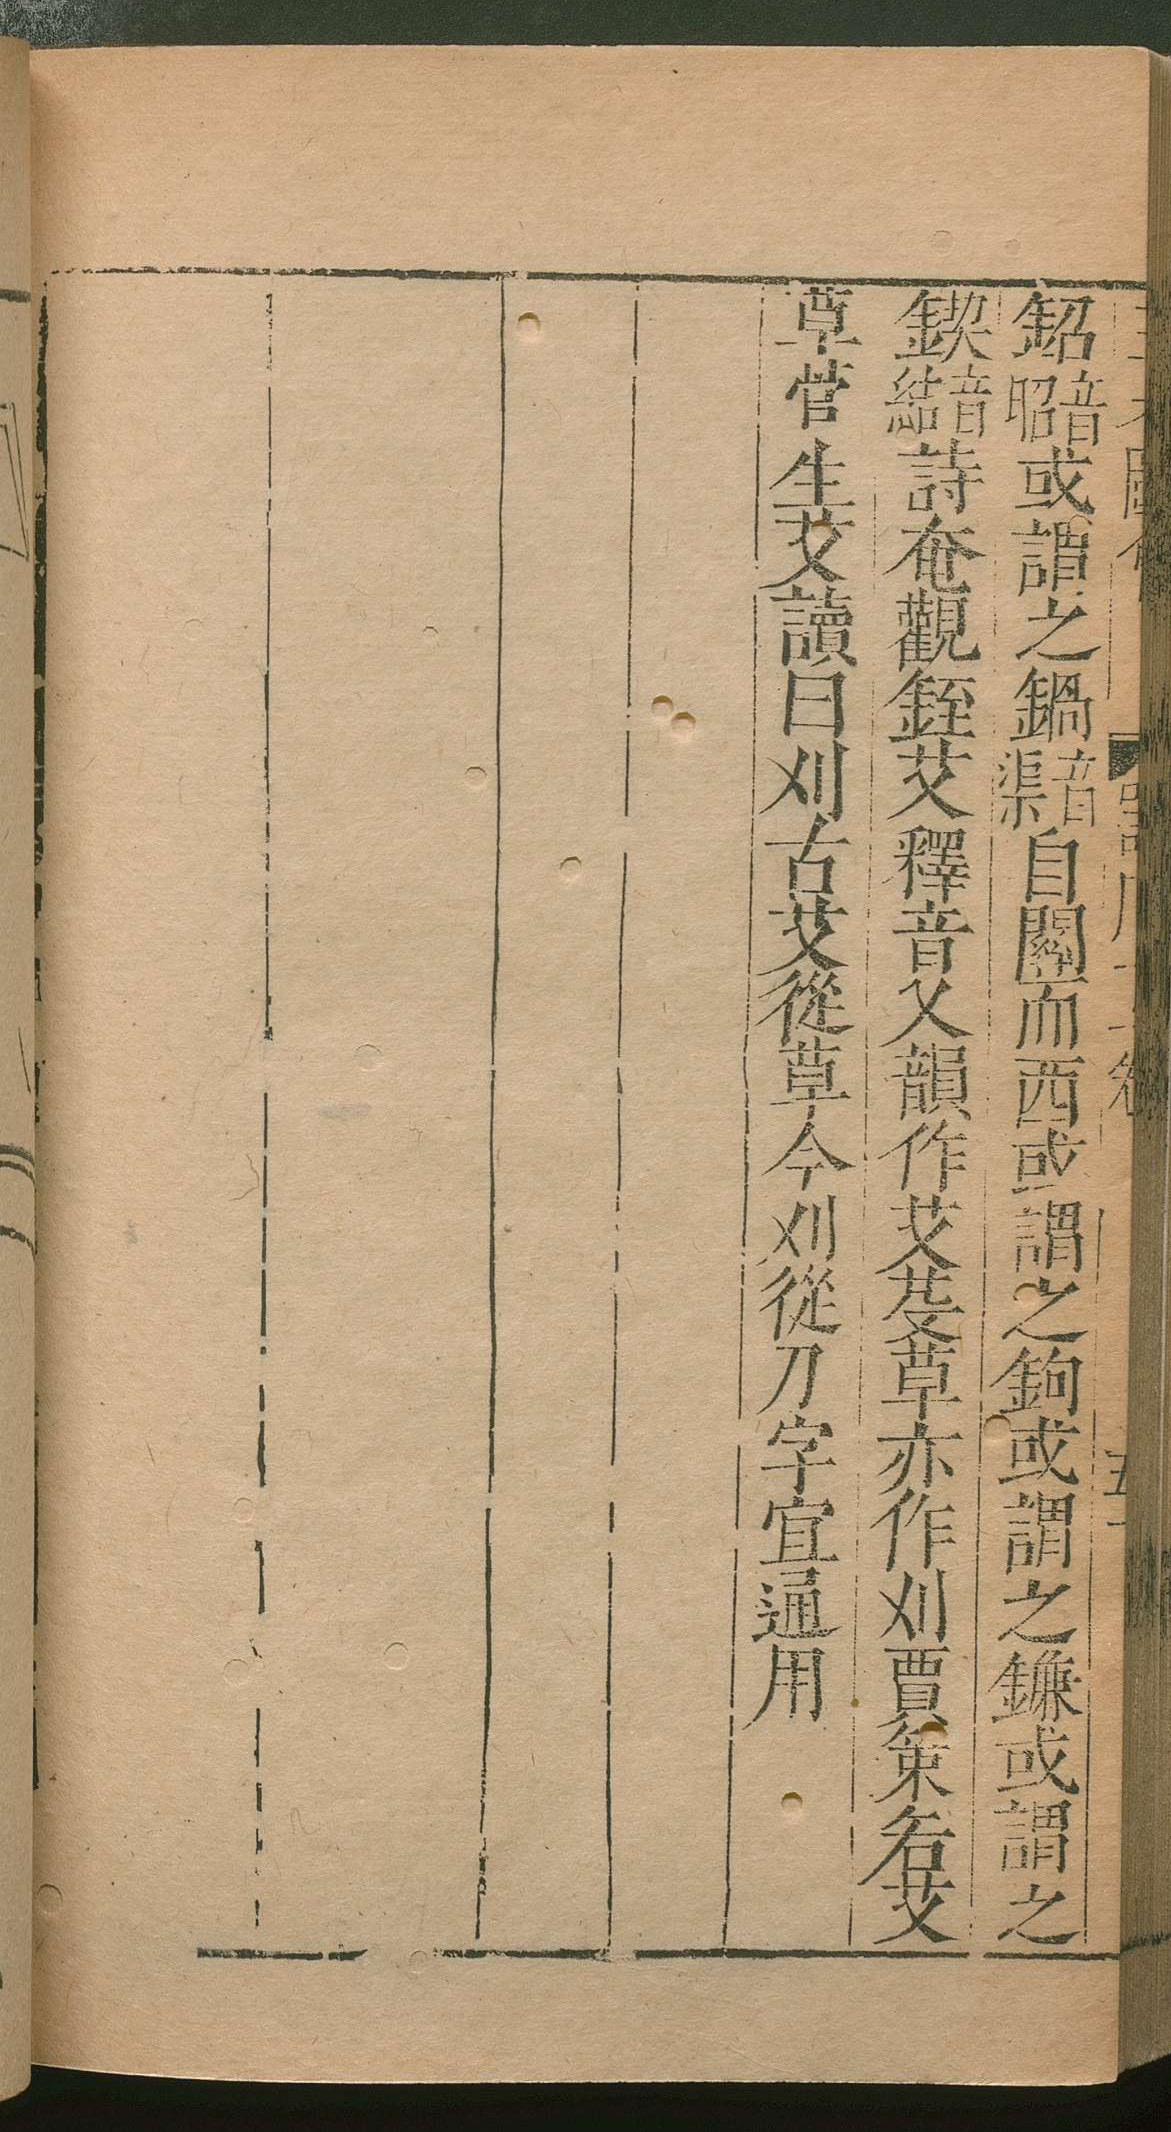 鉊音昭或謂之鍋音渠自關而西或謂之鉤或謂之鐮或謂之
鍥音結詩奄觀銍艾釋音乂韻作艾芟草亦作刈賈策若艾
草菅生艾讀曰刈古艾從草今刈從刀字宜通用